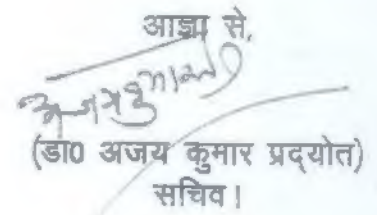 आज्ञा से,
(डा0 अजय कुमार प्रद्योत)
सचिव।